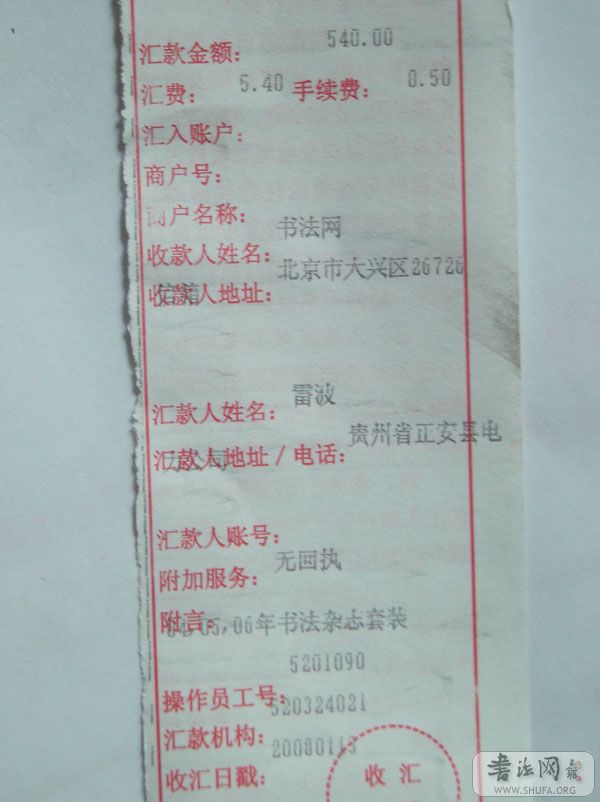 汇款金额： 540.00
汇费： 5.40 手续费： 0.50
汇入账户：
商户号：
商户名称：
收款人姓名： 书法网
收款人地址： 北京市大兴区26726
信箱
汇款人姓名： 雷波
汇款人地址／电话： 贵州省正安县电
汇款人账号：
附加服务： 无回执
附言： 04,05,06年书法杂志套装
5201090
操作员工号： 520324021
汇款机构： 20080113
收汇日戳：
收汇
书法网
WWW.SHUFA.ORG